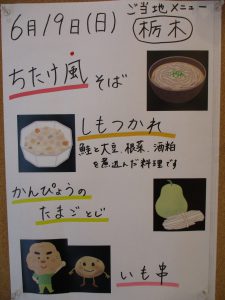 6月19日(日)
ご当地メニュー
栃木
ちたけ風そば
しもつかれ
鮭と大豆、根菜、酒粕
を煮込んだ料理です
かんぴょうの
たまごとじ
いも串